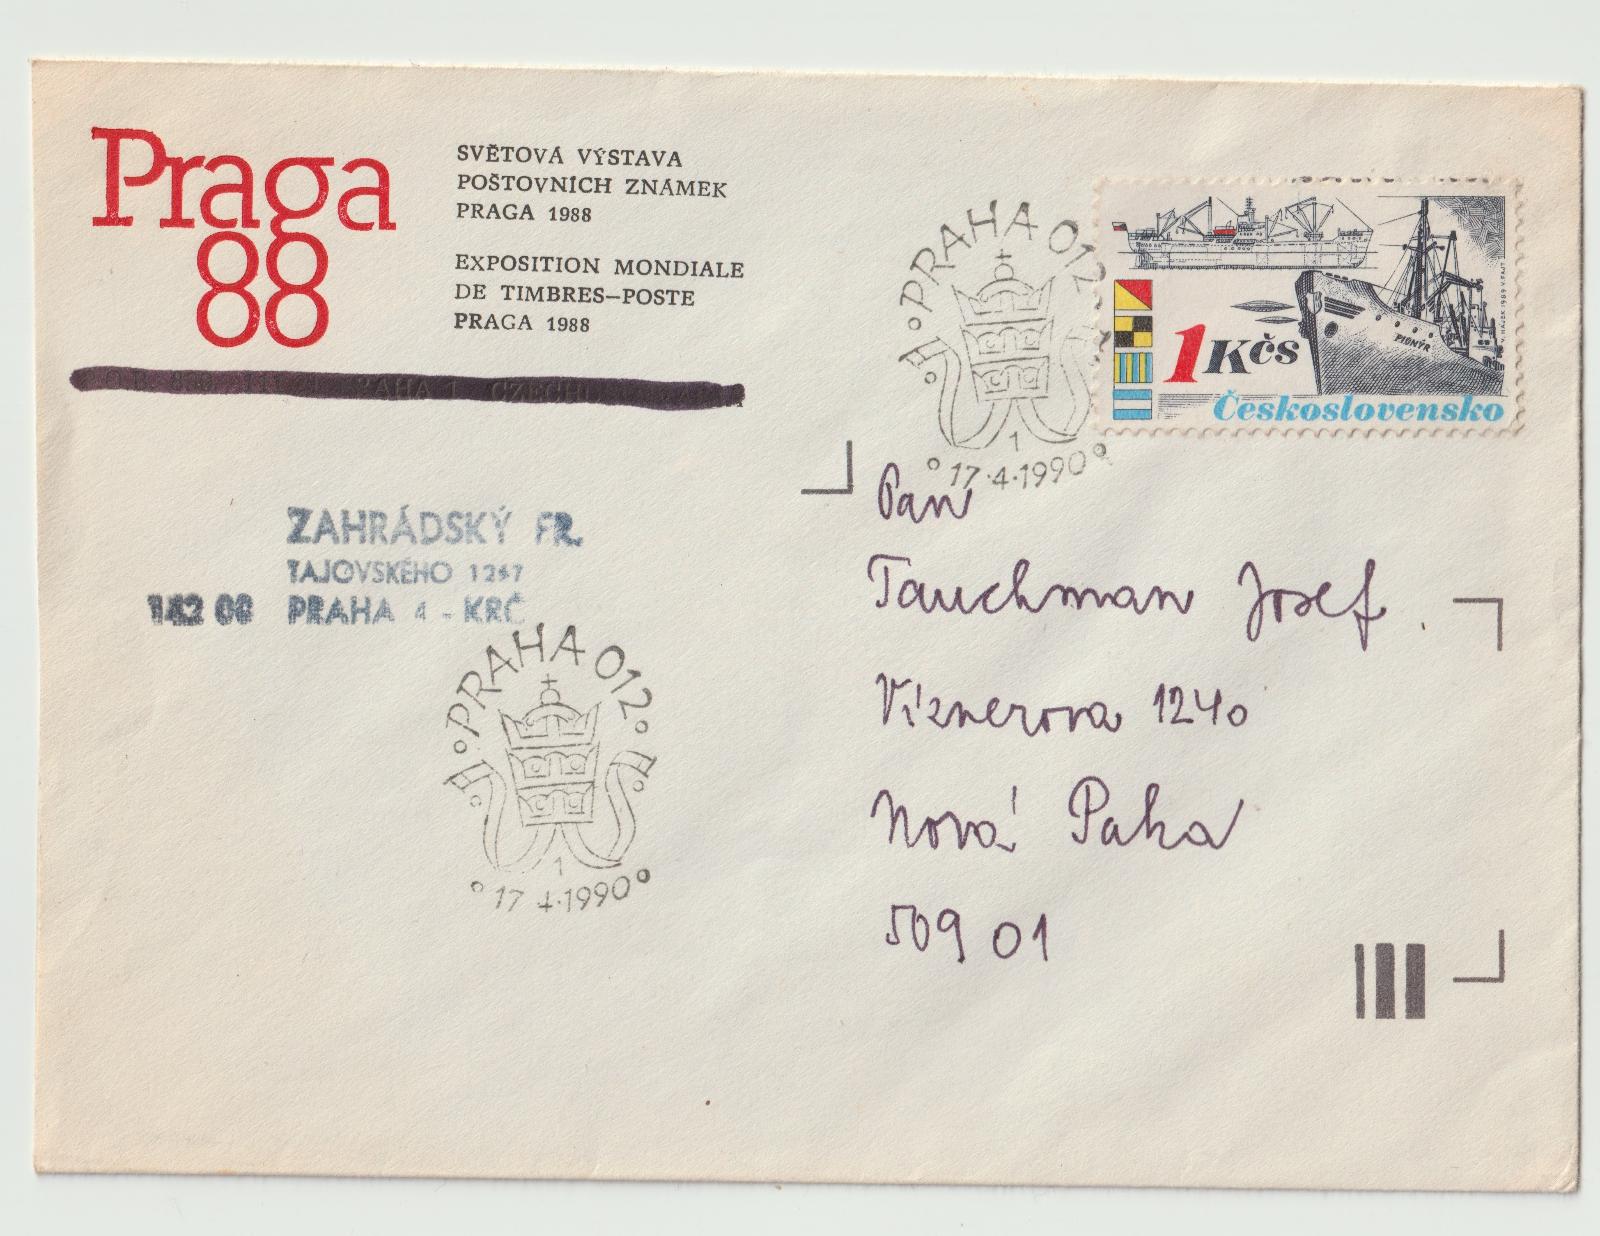 Praga
88
SVĚTOVÁ VÝSTAVA
POŠTOVNÍCH ZNÁMEK
PRAGA 1988
EXPOSITION MONDIALE
DE TIMBRES–POSTE
PRAGA 1988
PRAHA 012
1
17·4·1990
PIONÝR
1 Kčs
Československo
ZAHRÁDSKÝ FR.
TAJOVSKÉHO
PRAHA 4 - KRČ
PRAHA 012
1
17 4·1990
Pan
Tauchman Josef
Víznerova 1240
Nová Paka
509 01